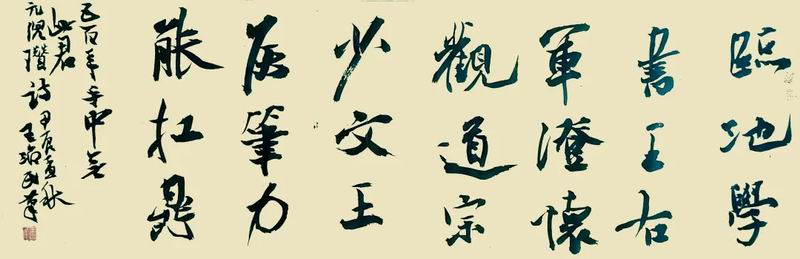 臨池學
書王右
軍澄懷
觀道宗
少文王
侯筆力
能扛鼎
五百年中無
此君
元倪瓚詩
甲辰孟秋